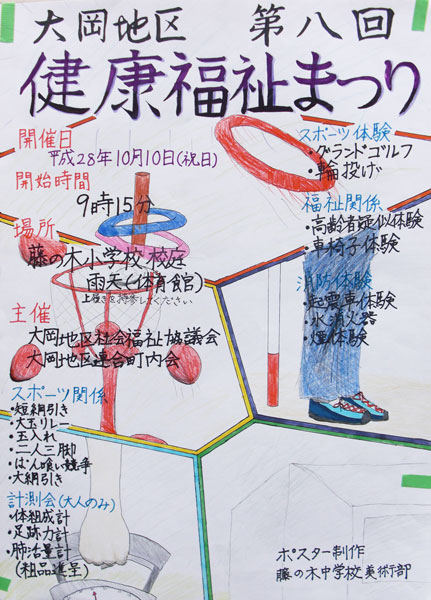 大岡地区 第八回
健康福祉まつり
開催日
平成28年10月10日(祝日)
開始時間
9時15分
場所
藤の木小学校 校庭
雨天(体育館)
上履きを持参してください
主催
大岡地区社会福祉協議会
大岡地区連合町内会
スポーツ関係
・短綱引き
・大玉リレー
・玉入れ
・二人三脚
・ぱん喰い競争
・大綱引き
計測会(大人のみ)
・体組成計
・足跡力計
・肺活量計
(粗品進呈)
スポーツ体験
・グランドゴルフ
・輪投げ
福祉関係
・高齢者疑似体験
・車椅子体験
消防体験
・起震車体験
・水消火器
・煙体験
ポスター制作
藤の木中学校美術部